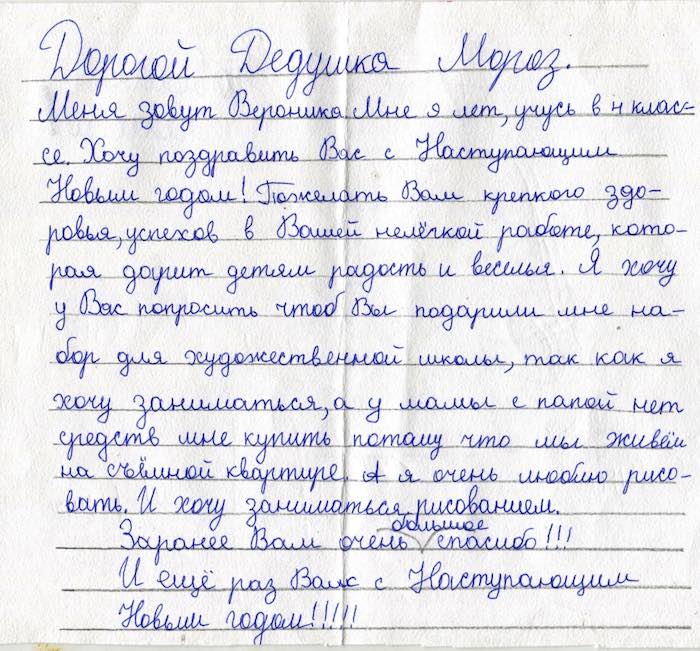 Дорогой Дедушка Мороз.
Меня зовут Вероника. Мне я лет, учусь в 4 клас-
се. Хочу поздравить Вас с Наступающим
Новым годом! Пожелать Вам крепкого здо-
ровья, успехов в Вашей нелёгкой работе, кото-
рая дарит детям радость и веселья. Я хочу
у Вас попросить чтоб Вы подарили мне на-
бор для художественной школы, так как я
хочу заниматься, а у мамы с папой нет
средств мне купить потому что мы живём
на съёмной квартире. А я очень люблю рисо-
вать. И хочу заниматься рисованием.
Заранее Вам очень большое спасибо!!!
И ещё раз Вас с Наступающим
Новым годом!!!!!